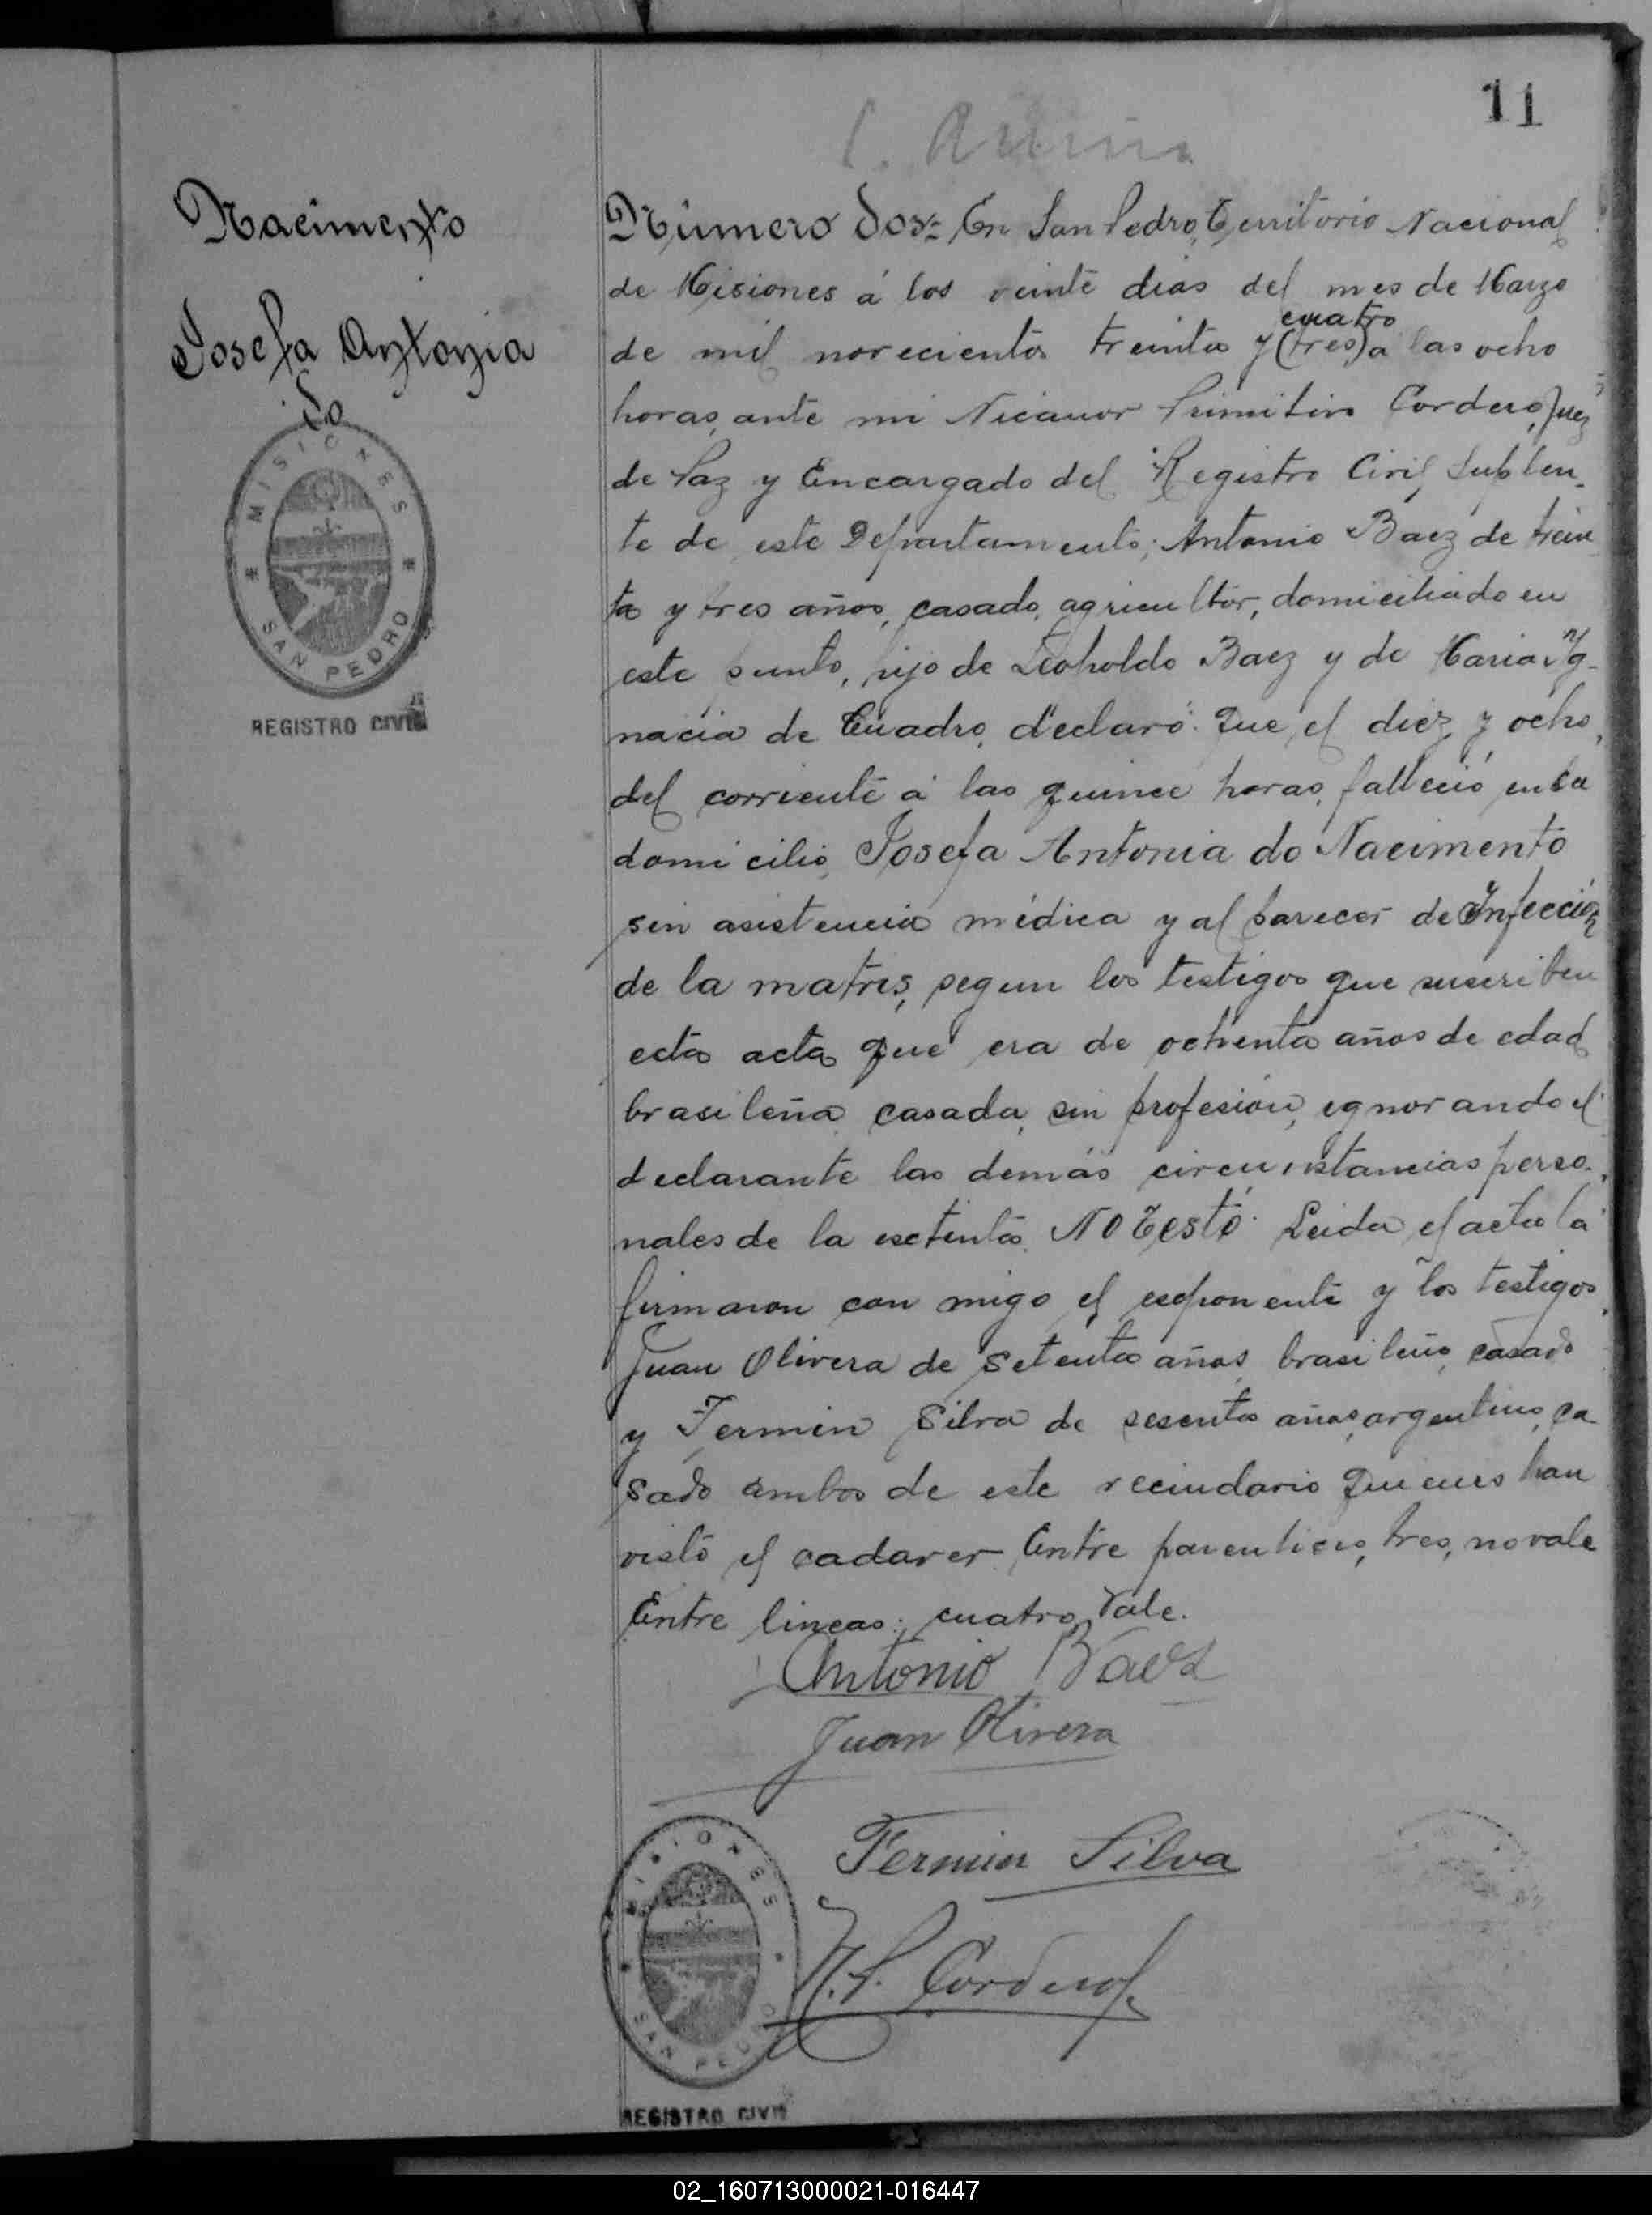 11
Nacimento
Josefa Antonia
do
MISIONES
SAN PEDRO
REGISTRO CIVIL
Número dos: En San Pedro, Territorio Nacional
de Misiones á los veinte dias del mes de Marzo
cuatro
de mil novecientos treinta y (tres) a las ocho
horas, ante mi Nicanor Primitivo Cordero, Juez
de Paz y Encargado del Registro Civil Suplen-
te de este Departamento; Antonio Baez de trein
ta y tres años, casado, agricultor, domiciliado en
este punto, hijo de Leopoldo Baez y de Maria Yg-
nacia de Cuadro, declaró: Que el diez y ocho
del corriente á las quince horas, falleció en su
domicilio, Josefa Antonia do Nacimento
sin asistencia médica y al parecer de Infección
de la matris, segun los testigos que suscriben
esta acta que era de ochenta años de edad
brasileña casada, sin profesión, ignorando el
declarante las demás circunstancias perso-
nales de la extinta. No Testó. Leida el acta la
firmaron con migo el exponente y los testigos
Juan Olivera de setenta años, brasileño, casado
y Fermin Silva de sesenta años, argentino, ca
sado ambos de este vecindario quienes han
visto el cadaver. Entre parenticis, tres, no vale
Entre lineas: cuatro, Vale.
Antonio Baez
Juan Olivera
Fermin Silva
N. P. Cordero
MISIONES
SAN PEDRO
REGISTRO CIVIL
02_160713000021-016447